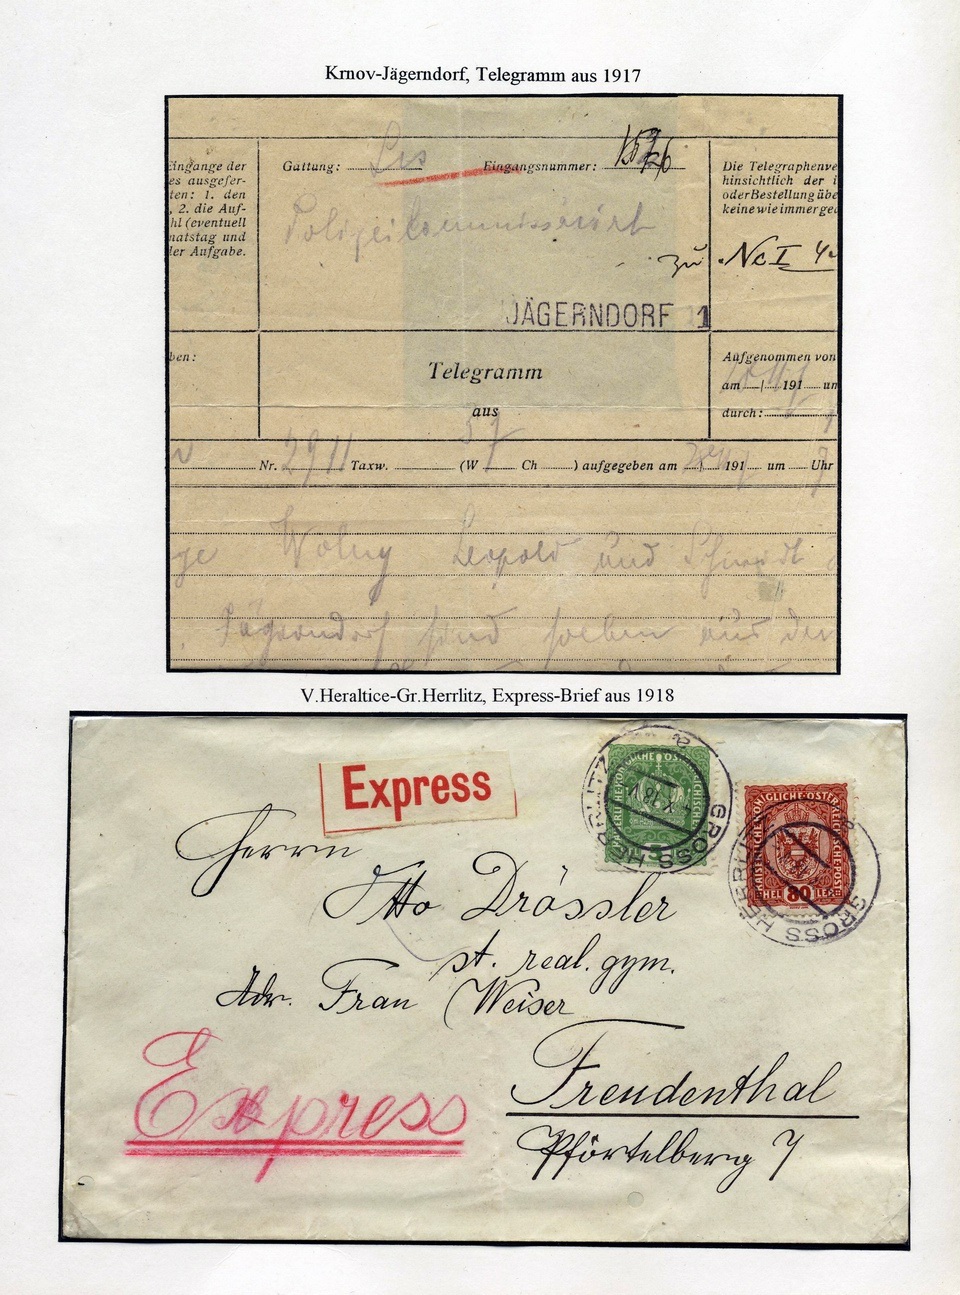 Krnov-Jägerndorf, Telegramm aus 1917
Eingange der
es ausgefer-
ten: 1. den
, 2. die Auf-
hl (eventuell
natstag und
der Aufgabe.
Gattung:
Eingangsnummer:
Die Telegraphenve
hinsichtlich der i
oder Bestellung übe
keine wie immer gea
Polizeikommissariat
zu Nc I 4
JÄGERNDORF 1
ben:
Telegramm
aus
Aufgenommen von
am 191 um
durch:
Nr. 2911 Taxw. (W 57 Ch ) aufgegeben am 191 um Uhr 7
Wolny Leopold und Schmidt
Jägerndorf sind soeben aus der
V.Heraltice-Gr.Herrlitz, Express-Brief aus 1918
Express
GROSS HERRLITZ
KAISERLICHE KÖNIGLICHE ÖSTERREICHISCHE POST
5
GROSS HERRLITZ
KAISERLICHE KÖNIGLICHE ÖSTERREICHISCHE POST
HELLER 80
Herrn
Otto Drössler
st. real. gym.
Adr. Frau Weiser
Express
Freudenthal
Pförtelberg 7